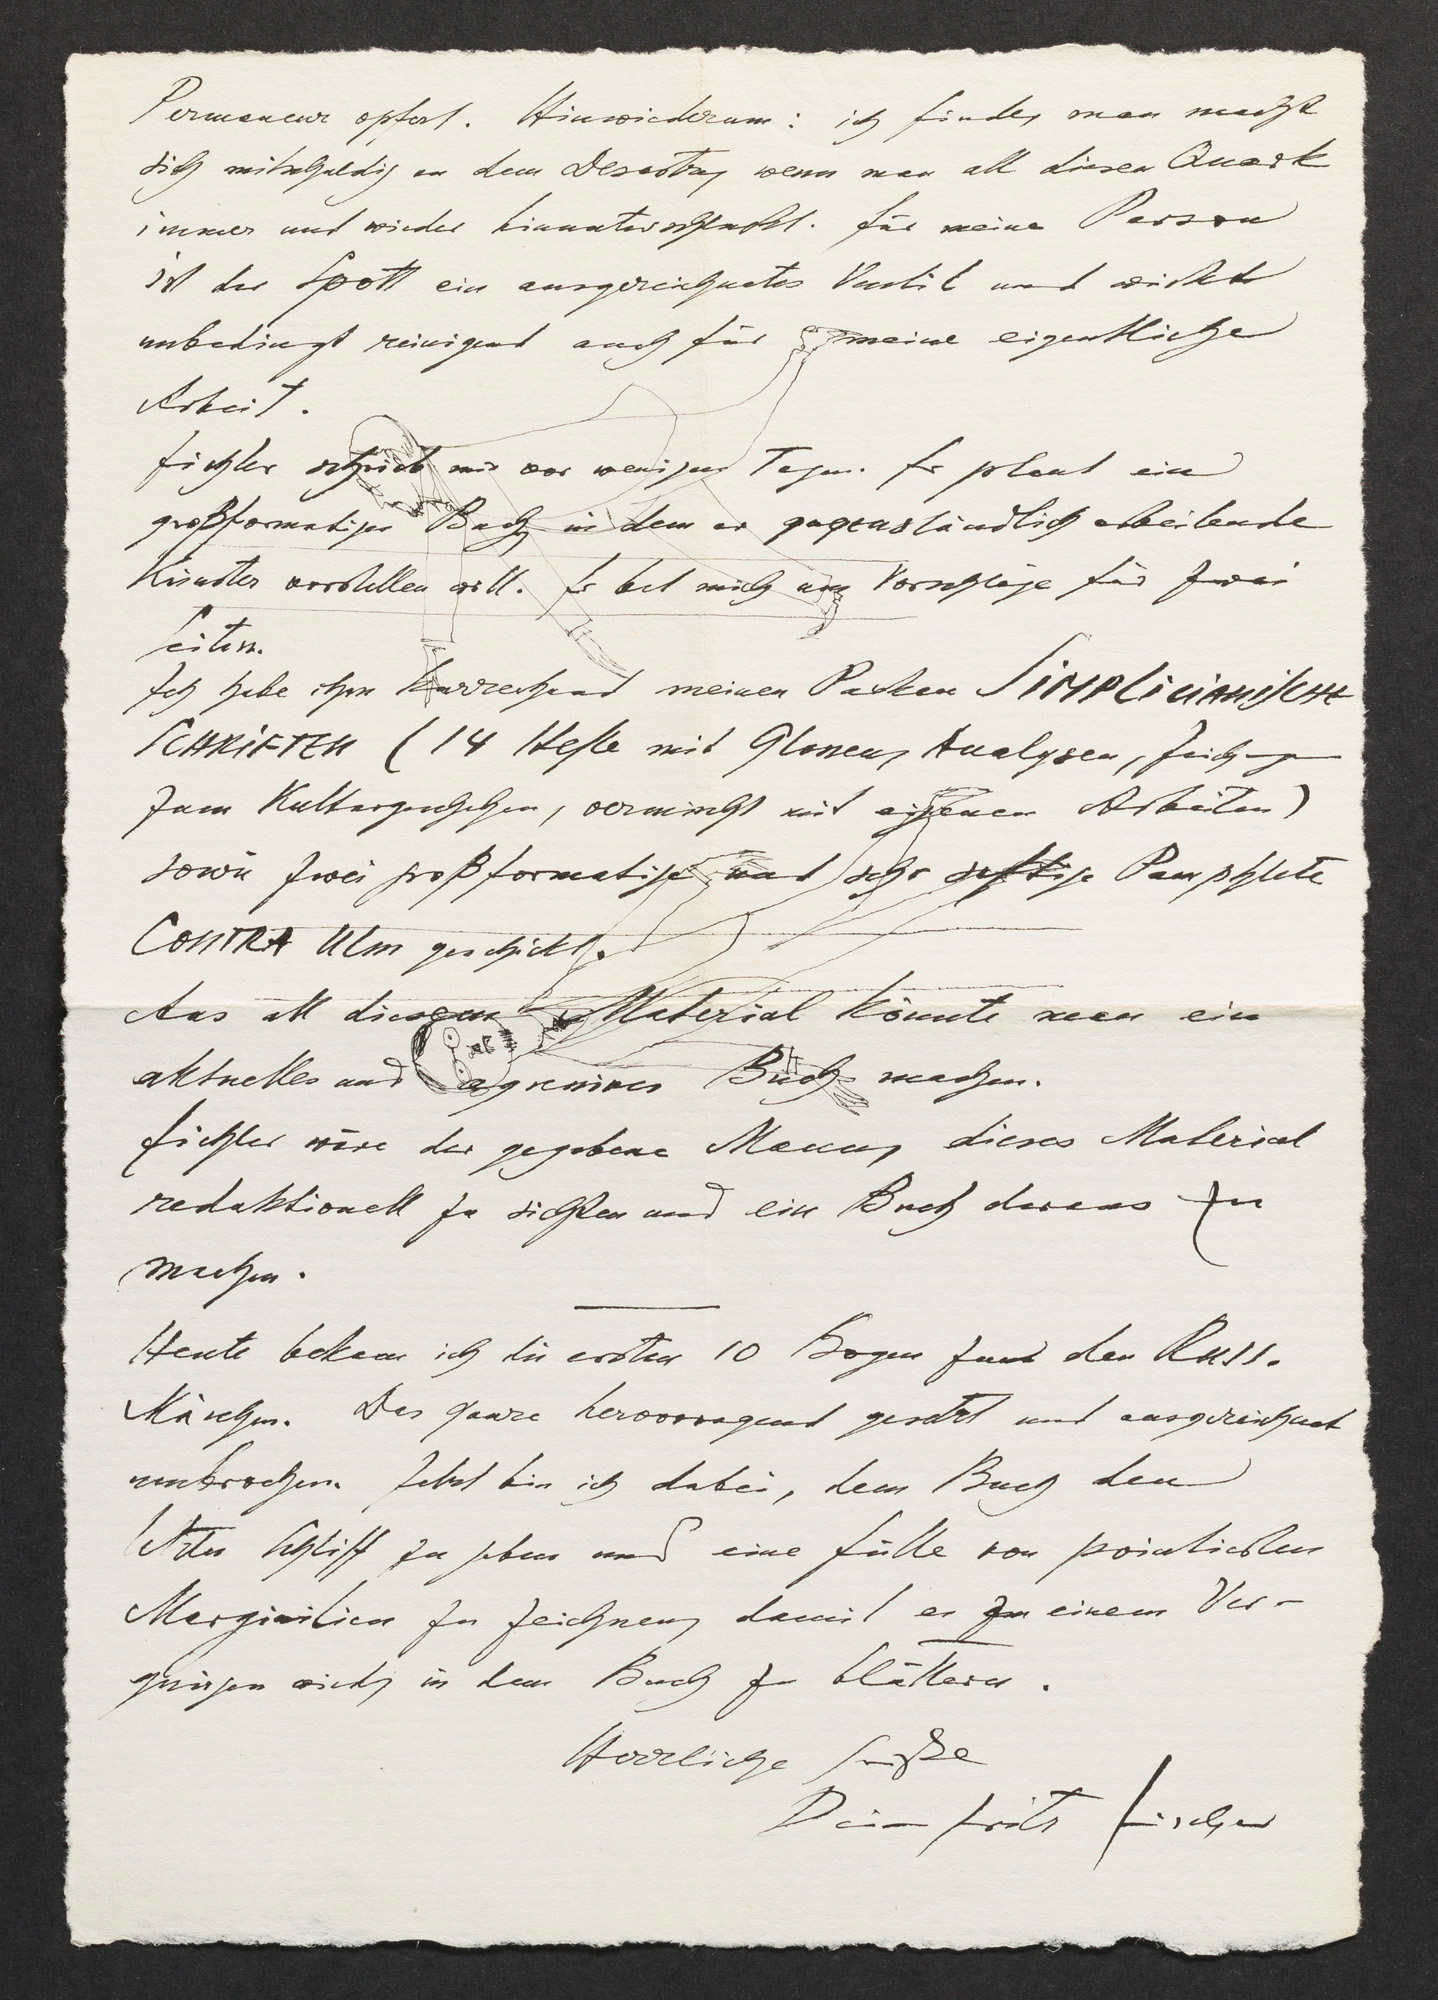 Permaneur opfert. Hinwiederum: ich finde, man macht
sich mitschuldig an dem Desaster, wenn man all diesen Quark
immer und wieder hinunterschluckt. Für meine Person
ist der Spott ein ausgezeichnetes Ventil und wirkt
unbedingt reinigend auch für meine eigentliche
Arbeit.
Fichter schrieb mir vor wenigen Tagen. Er plant ein
großformatiges Buch, in dem er gegenständlich arbeitende
Künstler vorstellen will. Er bat mich um Vorschläge für zwei
Seiten.
Ich habe ihm kurzerhand meinen Packen SIMPLICIANISCHE
SCHRIFTEN (14 Hefte mit Glossen, Analysen, Zeichnungen
zum Kulturgeschehen, vermischt mit eigenen Arbeiten)
sowie zwei großformatige und sehr deftige Pamphlete
CONTRA Ulm geschickt.
Aus all diesem Material könnte man ein
aktuelles und agressives Buch machen.
Fichter wäre der gegebene Mann, dieses Material
redaktionell zu sichten und ein Buch daraus zu
machen.
Heute bekam ich die ersten 10 Bogen zu den Russ.
Märchen. Das ganze hervorragend gesetzt und ausgezeichnet
umbrochen. Jetzt bin ich dabei, dem Buch den
letzten Schliff zu geben und eine Fülle von pointierten
Marginalien zu zeichnen, damit es zu einem Ver-
gnügen wird, in dem Buch zu blättern.
Herzliche Grüße
Dein Fritz Fischer